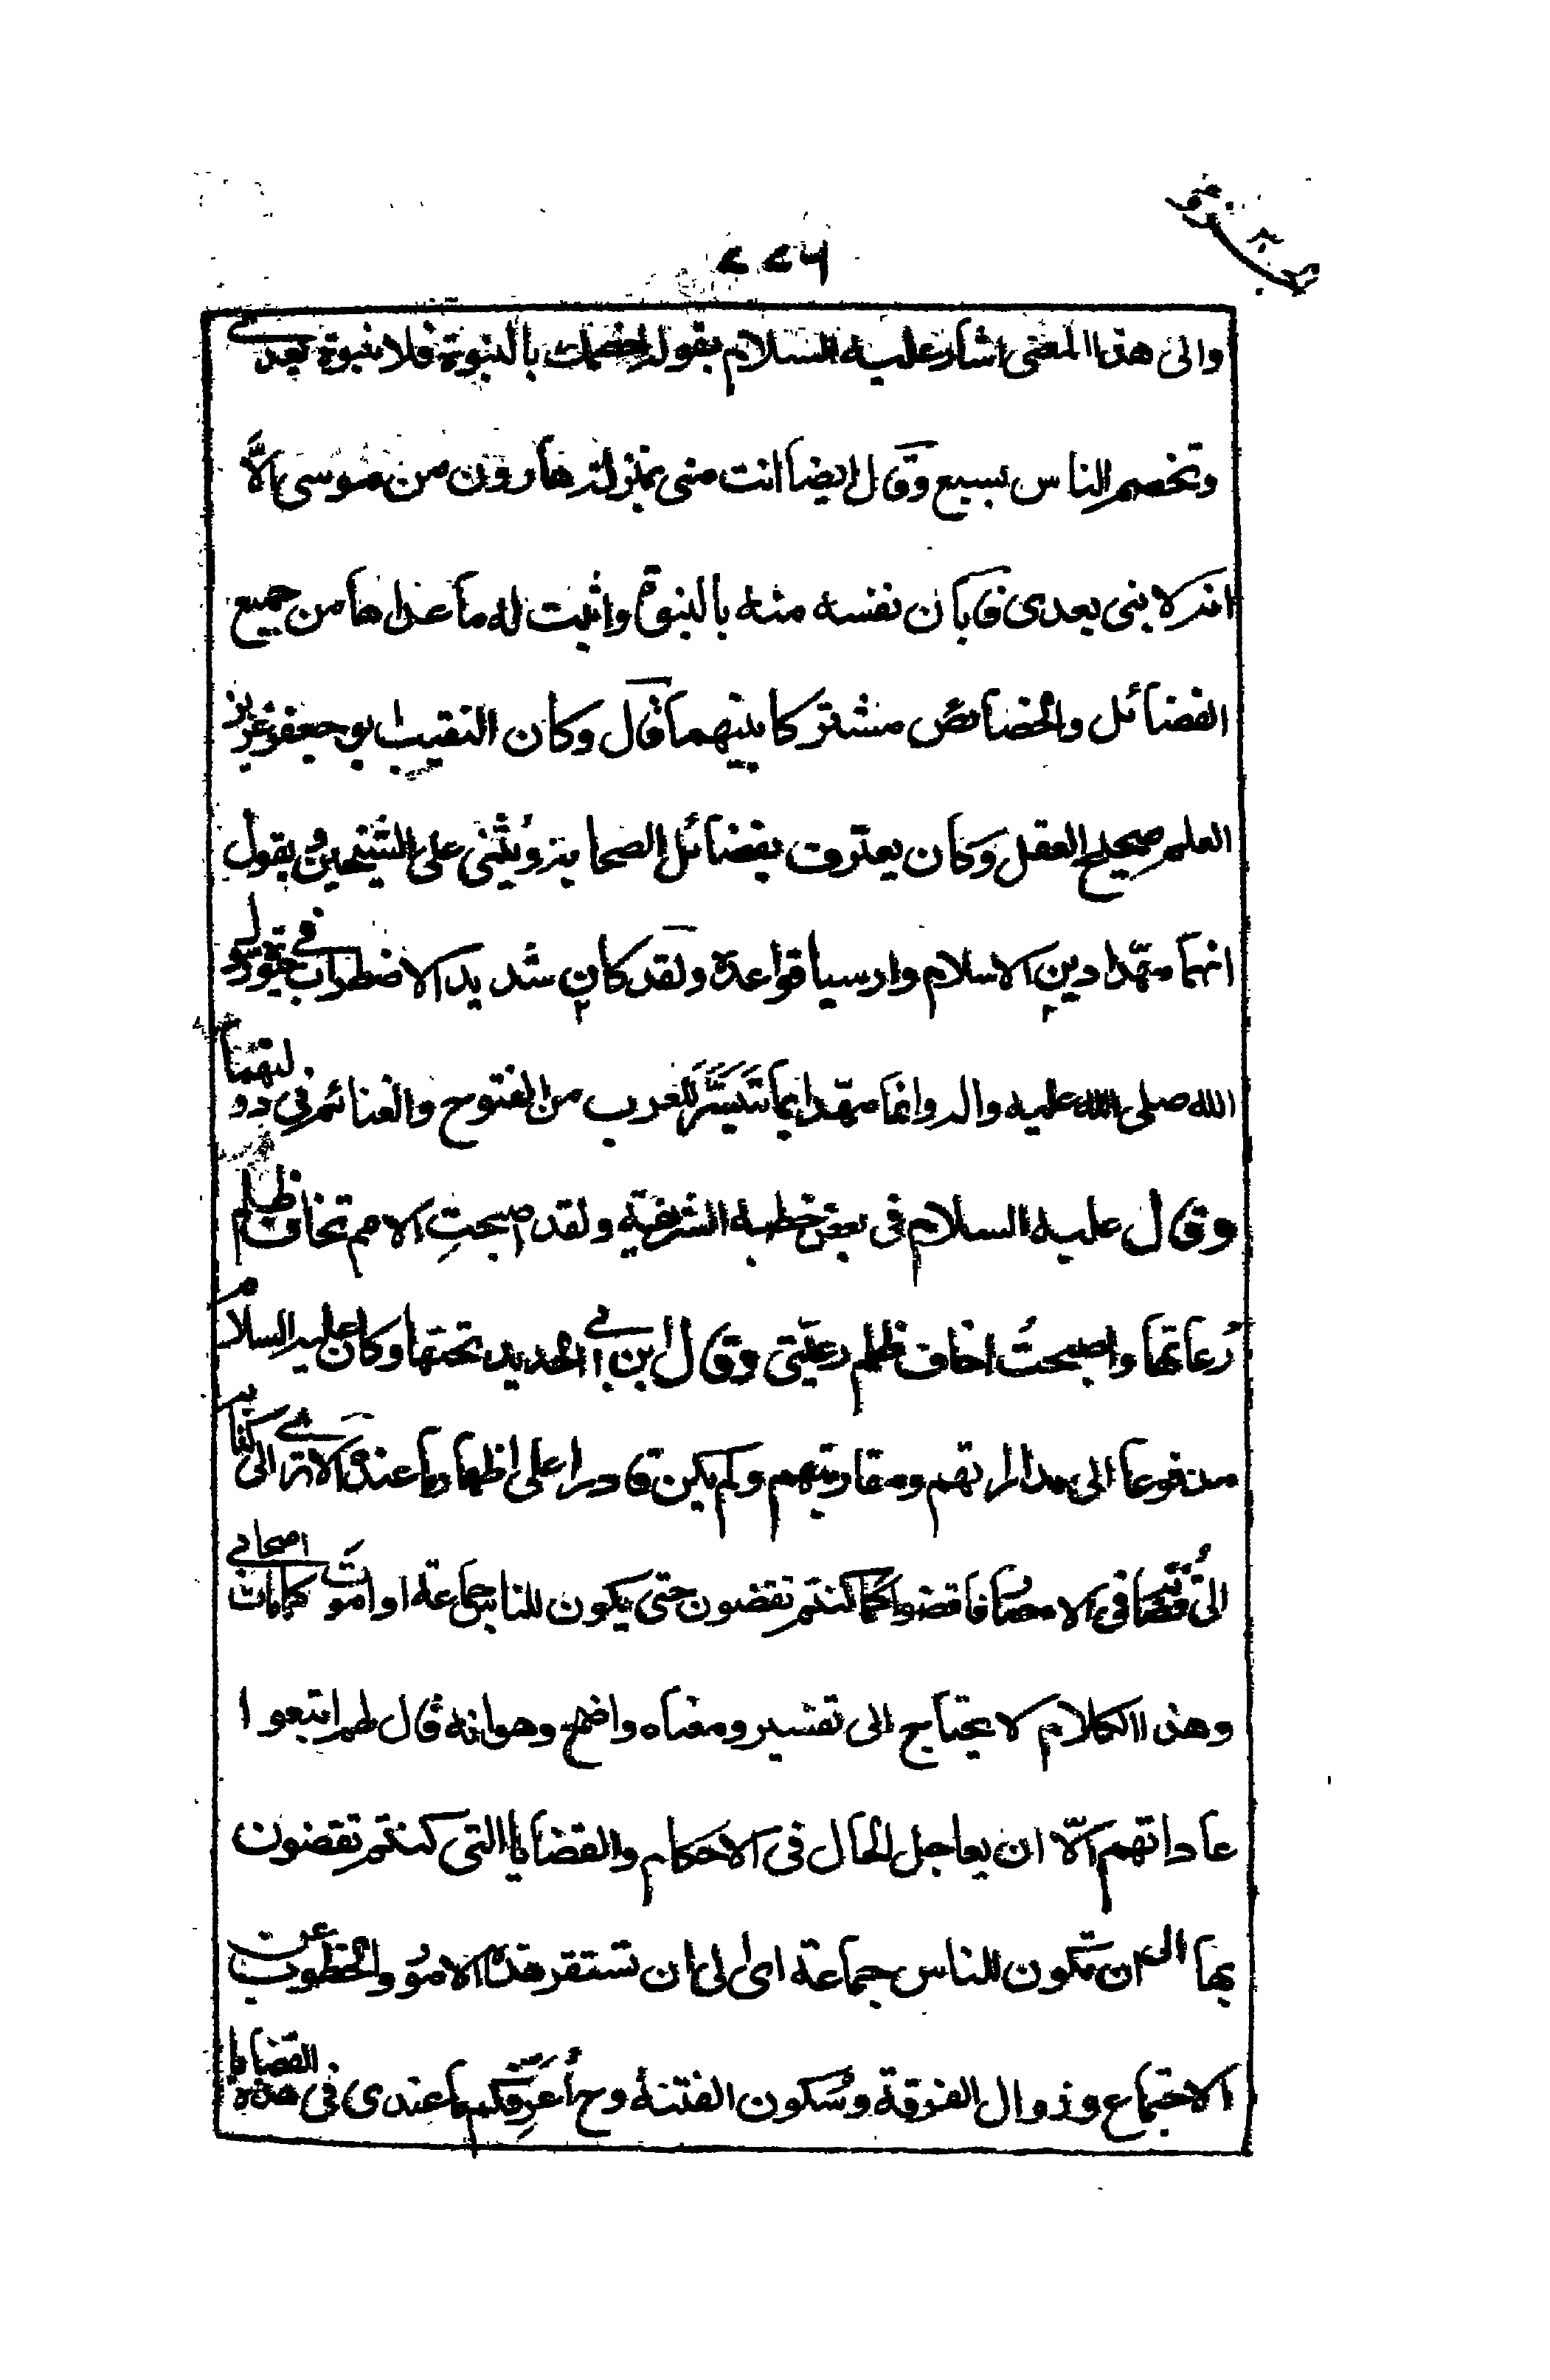 والى هذا المعنى اشار عليه السلام بقوله اخصمك بالنبوة فلا نبوة بعدى
وتخصم الناس بسبع وقال ايضا انت منى بمنزلة هارون من موسى الّا
انه لا نبى بعدى فابان نفسه منه بالنبوة واثبت له ما عداها من جميع
الفضائل والخصائص مشتركا بينهما قال وكان النقيب ابو جعفر غزير
العلم صحيح العقل وكان يعترف بفضائل الصحابة ويُثنى على الشيخين ويقول
انهما مهّدا دين الاسلام وارسيا قواعده ولقد كان شديد الاضطراب فى حيٰوة رسول
الله صلى الله عليه واله وانما مهّدا بما تيَسَّر للعرب من الفتوح والغنائم فى دولتهما
وقال عليه السلام فى بعض خطبه الشريفة ولقد اصبحتِ الامم تخاف ظلم
رُعاتها واصبحتُ اخاف ظلم رعيّتى وقال ابن ابى الحديد تحتها وكان عليه السلام
مدفوعا الى مداراتهم ومقاربتهم ولم يكن قادرا على اظهار ما عنده الا ترى الى كتابه
الى قُضاته فى الامصار فاقضوا كما كنتم تقضون حتى يكون للناس جماعة او اموتَ كما مات اصحابى
وهذا الكلام لا يحتاج الى تفسير ومعناه واضح وهو انه قال لهم اتبعوا
عاداتهم الّا ان بعاجل الحال فى الاحكام والقضايا التى كنتم تقضون
بها الى ان تكون للناس جماعة اى الى ان تستقر هذه الامور والخطوب عن
الاجتماع وزوال الفرقة وسُكون الفتنة وح اُعرِّفكم ما عندى فى هذه القضايا